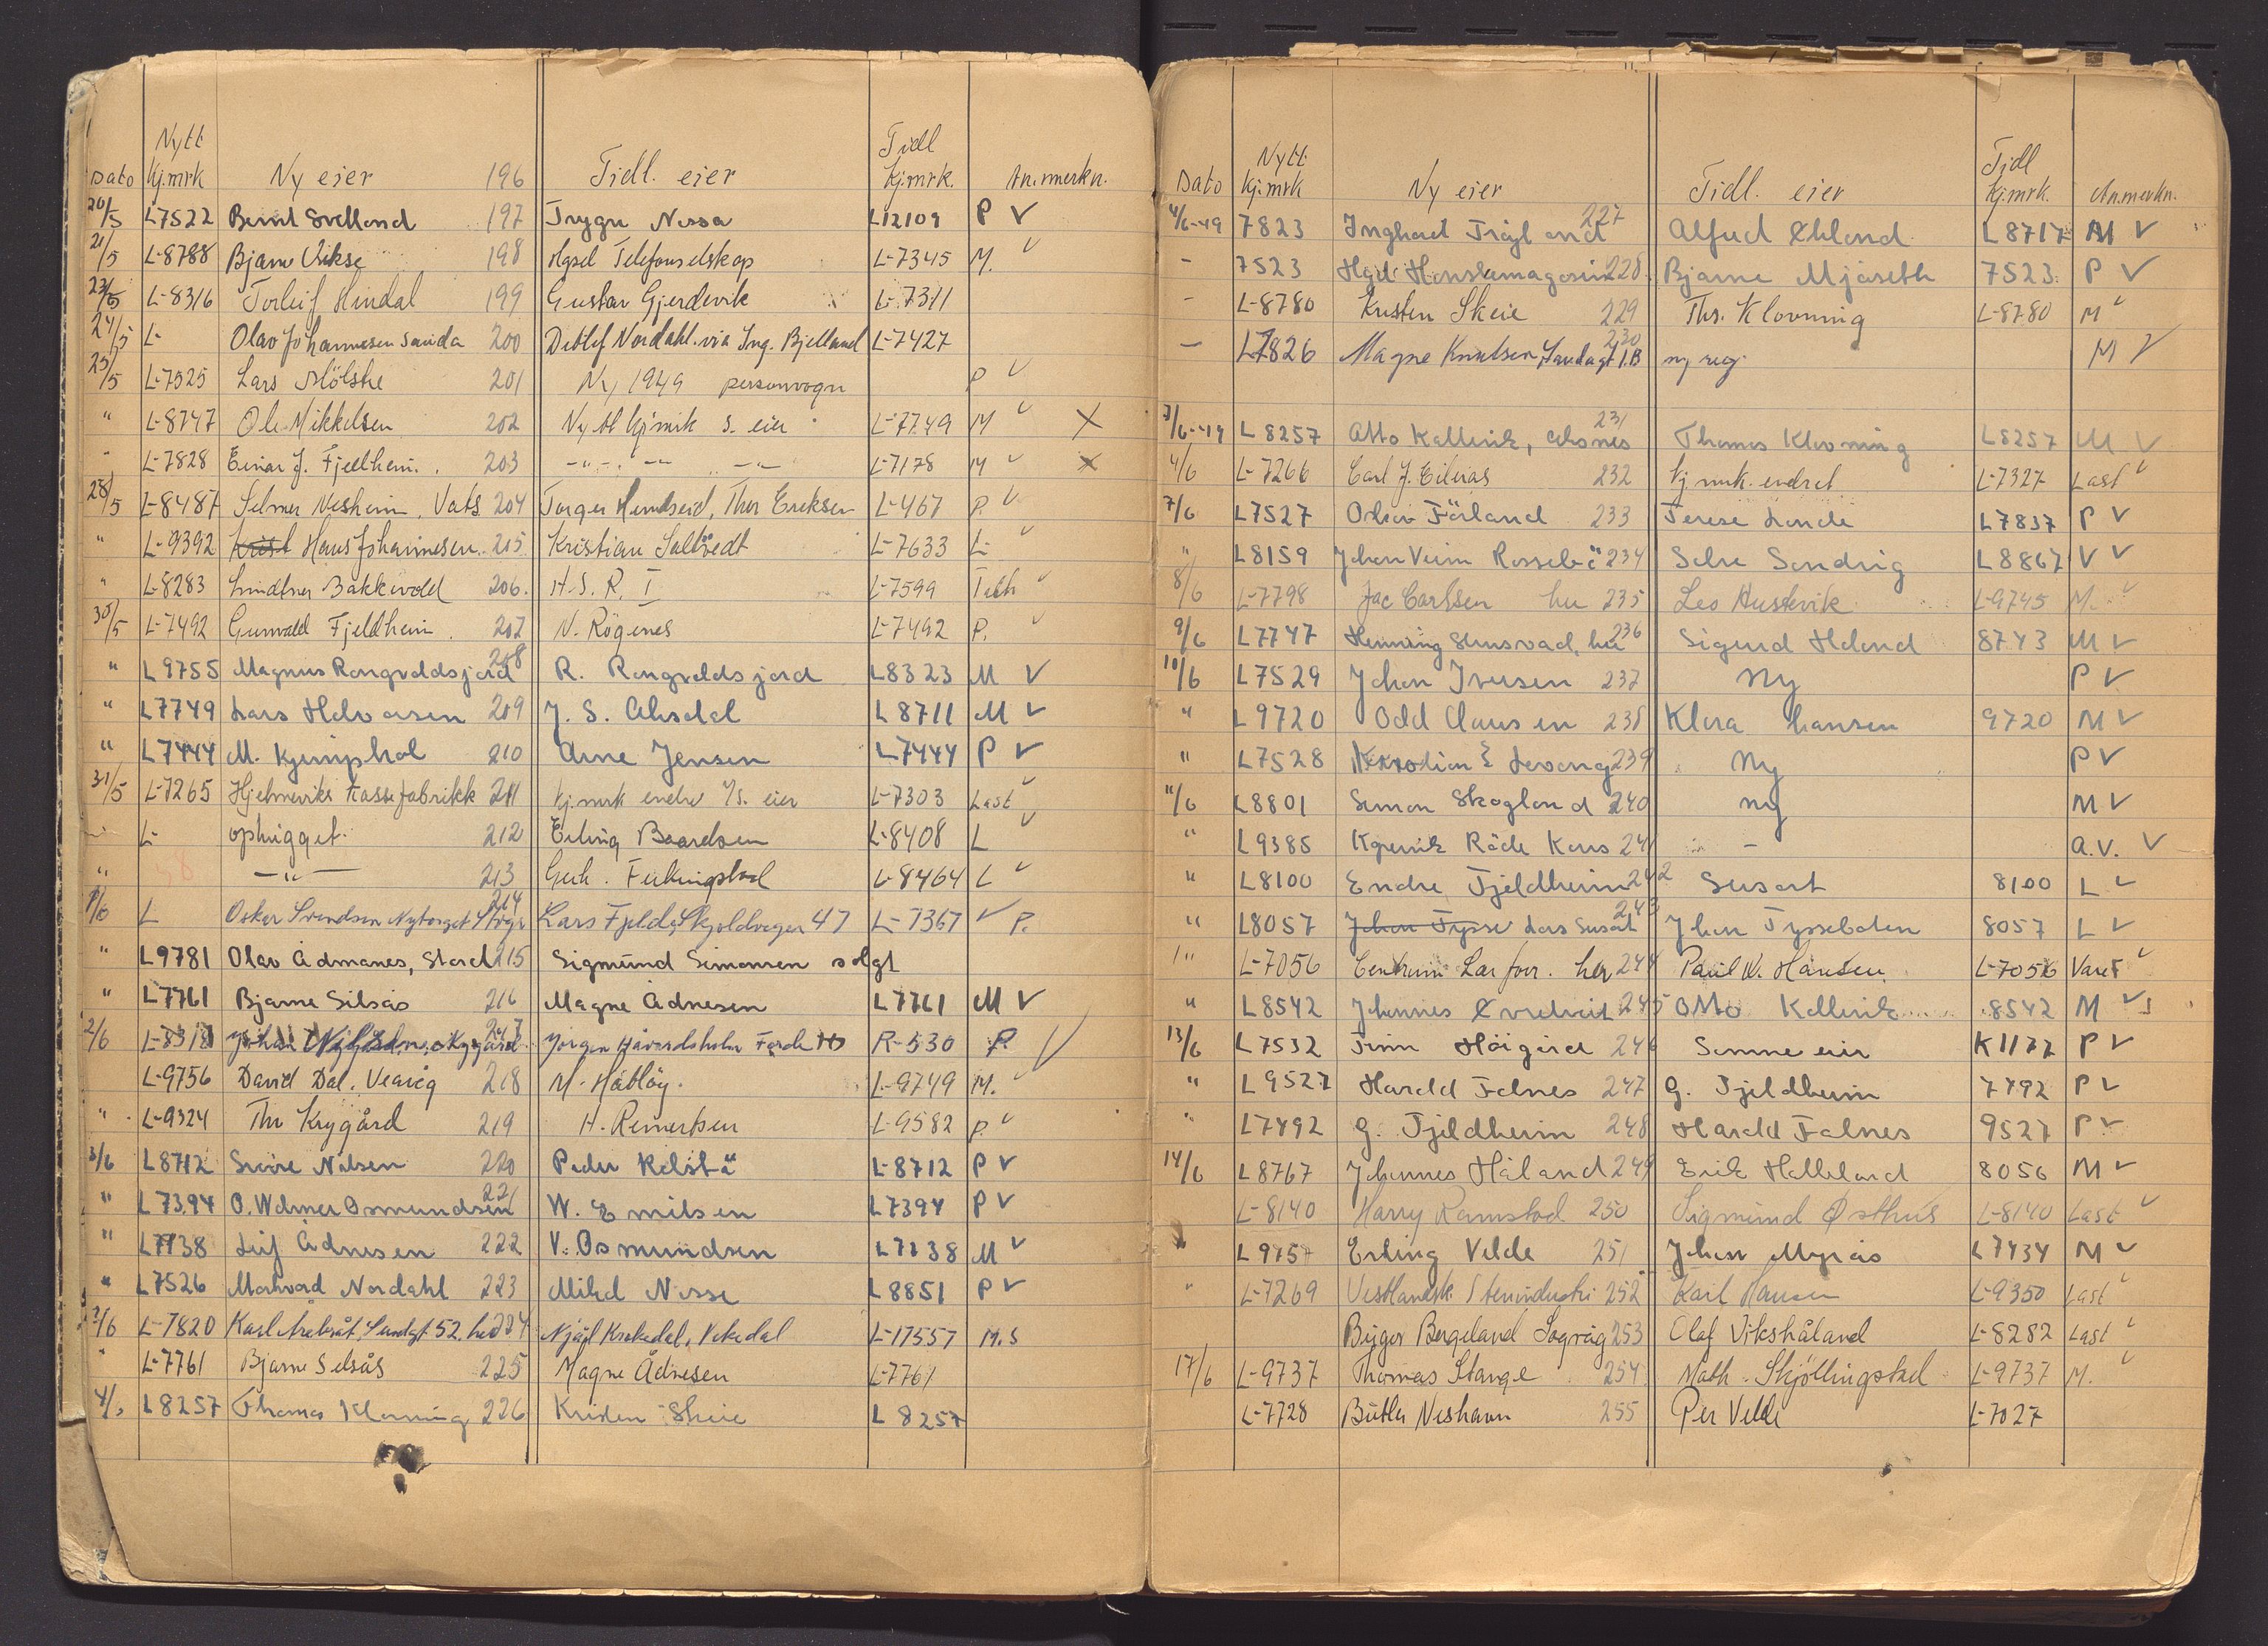 Dato Nytt Kj.mrk Ny eier 196 Tidl. eier Tidl Kj.mrk. Anmerkn.
20/5 L-7522 Bernt Svelland 197 Trygve Nessa L12109 P V
21/5 L-8788 Bjarne Vikse 198 Hgsd Telefonselskap L-7345 M. V
23/5 L-8316 Torleif Hindal 199 Gustav Gjerdevik L-7311
24/5 L- Olav Johannesen Sauda 200 Detlef Nordahl via Ing. Bjelland L-7427
25/5 L-7525 Lars Mölstre 201 Ny 1949 personvogn P V
" L-8747 Ole Mikkelsen 202 Nytt kj.mrk s. eier L-7749 M V X
" L-7828 Einar J. Fjellheim. 203 -"- -"- -"- L-7178 M V X
28/5 L-8487 Selmer Nesheim, Vats 204 Torger Hundseid, Thor Eriksen L-467 P. V
" L-9392 Krist Hans Johannesen. 205 Kristian Saltvedt L-7633 L- V
" L-8283 Bakkevold 206. H.S.R. I L-7599 V
30/5 L-7492 Gunvald Fjeldheim. 207 N. Rögenes L-7492 P. V
" L9755 Magnus Rangvaldsjord 208 R. Rangvaldsjord L8323 M V
" L7749 Lars Halvorsen 209 J. S. Alsdal L8711 M V
" L7444 M. Kjemphol 210 Arne Jensen L7444 P V
31/5 L-7265 Hjelmeviks Kassefabrikk 211 kj.mrk endr s. eier L-7303 Last V
L- ophugget. 212 Erling Baardsen L-8408 L V
" -"- 213 Feikingstad L-8464 L V
1/6 L Oskar Svendsen Nytorget Stvgr 214 Lars Fjeld, Skjoldveger 47 L-7367 V P.
" L9781 Olav Ådnanes, Stord 215 Sigmund Simonsen solgt
" L7761 Bjarne Silsås 216 Magne Ådnesen L7761 M V
2/6 L-8318 217 Jörgen Håvardsholm Förde R-530 P. V
L-9756 David Dal, Veavåg 218 M. Håtlöy. L-9749 M. V
" L-9324 Thv Krygård 219 H. Reinertsen L-9582 P. V
3/6 L8712 Sverre Nilsen 220 Peder Kolstö L-8712 P V
" L7394 O. Wermer Osmundsen 221 W. Emilsen L7394 P V
" L7738 Leif Ådnesen 222 V. Osmundsen L7738 M V
" L7526 Markvard Nordahl 223 Mikal Nesse L8851 P V
3/6 L-7820 Karl Årekråt, Sundgt 52, her 224 Njål Krakedal, Vikedal L-17557 M.S
" L-7761 Bjarne Selsås 225 Magne Ådnesen L-7761
4/6 L8257 Thomas Klovning 226 Kristen Skeie L 8257
Dato Nytt Kj.mrk Ny eier Tidl. eier Tidl Kj.mrk. Anmerkn.
4/6-49 7823 Inghard Trågland 227 Alfred Ekland L8717 M V
- 7523 Hgd. Hanskemagasin 228. Bjarne Mjåseth 7523. P V
- L-8780 Kristen Skeie 229 Ths. Klovning L-8780 M V
- L7826 Magne Knutsen, Sundagt 1.B 230 ny reg. M V
7/6-49 L8257 Otto Kallevik, Aksnes 231 Thomas Klovning L8257 M V
4/6 L-7266 Carl J. Eileras 232 kj.mrk. endret L-7327 Last V
7/6 L7527 Olav Förland 233 Terese Lande L7837 P V
" L8159 Johan Veim Rossebö 234 Salve Sandvig L8867 V V
8/6 L-7798 Jac Carlsen her 235 Leo Austevik L-9745 M. V
9/6 L7747 Henning Stensvad, her 236 Sigurd Heland 8743 M V
10/6 L7529 Johan Iversen 237 Ny P V
" L9720 Odd Clausen 238 Klara Hansen 9720 M V
" L7528 & Levang 239 Ny P V
11/6 L8801 Simon Skogland 240 Ny M V
" L9385 Kopervik Röde Kors 241 - A.V. V
" L8100 Endre Fjeldheim 242 Susort 8100 L V
" L8057 Johan Tysse Lars Susort 243 Johan Tyssebotten 8057 L V
" L-7056 Centrum Lar forr. her 244 Paul W. Hansen. L-7056 Varef V
" L8542 JohannesÖvretveit 245 Otto Kallevik 8542 M V
13/6 L7532 Finn Höigård 246 Samme eier K1177 P V
" L9527 Harald Falnes 247 G. Fjeldheim 7492 P V
" L7492 G. Fjeldheim 248 Harald Falnes 9527 P V
14/6 L8767 Johannes Håland 249 Erik Helleland 8056 M V
L-8140 Harry Ramstad 250 Sigmund Østhus L-8140 Last V
" L9757 Erling Velde 251 Johan Myrås L7434 M V
" L-7269 Vestlandsk Stenindustri 252 Karl Hansen L-9350 Last V
Birger Bergeland Sogråg 253 Olaf Vikshåland L-8282 Last V
17/6 L-9737 Thomas Stange 254. Math. Skjöllingstad L-9737 M. V
L-7728 Butler Neshavn 255 Per Velde L-7027